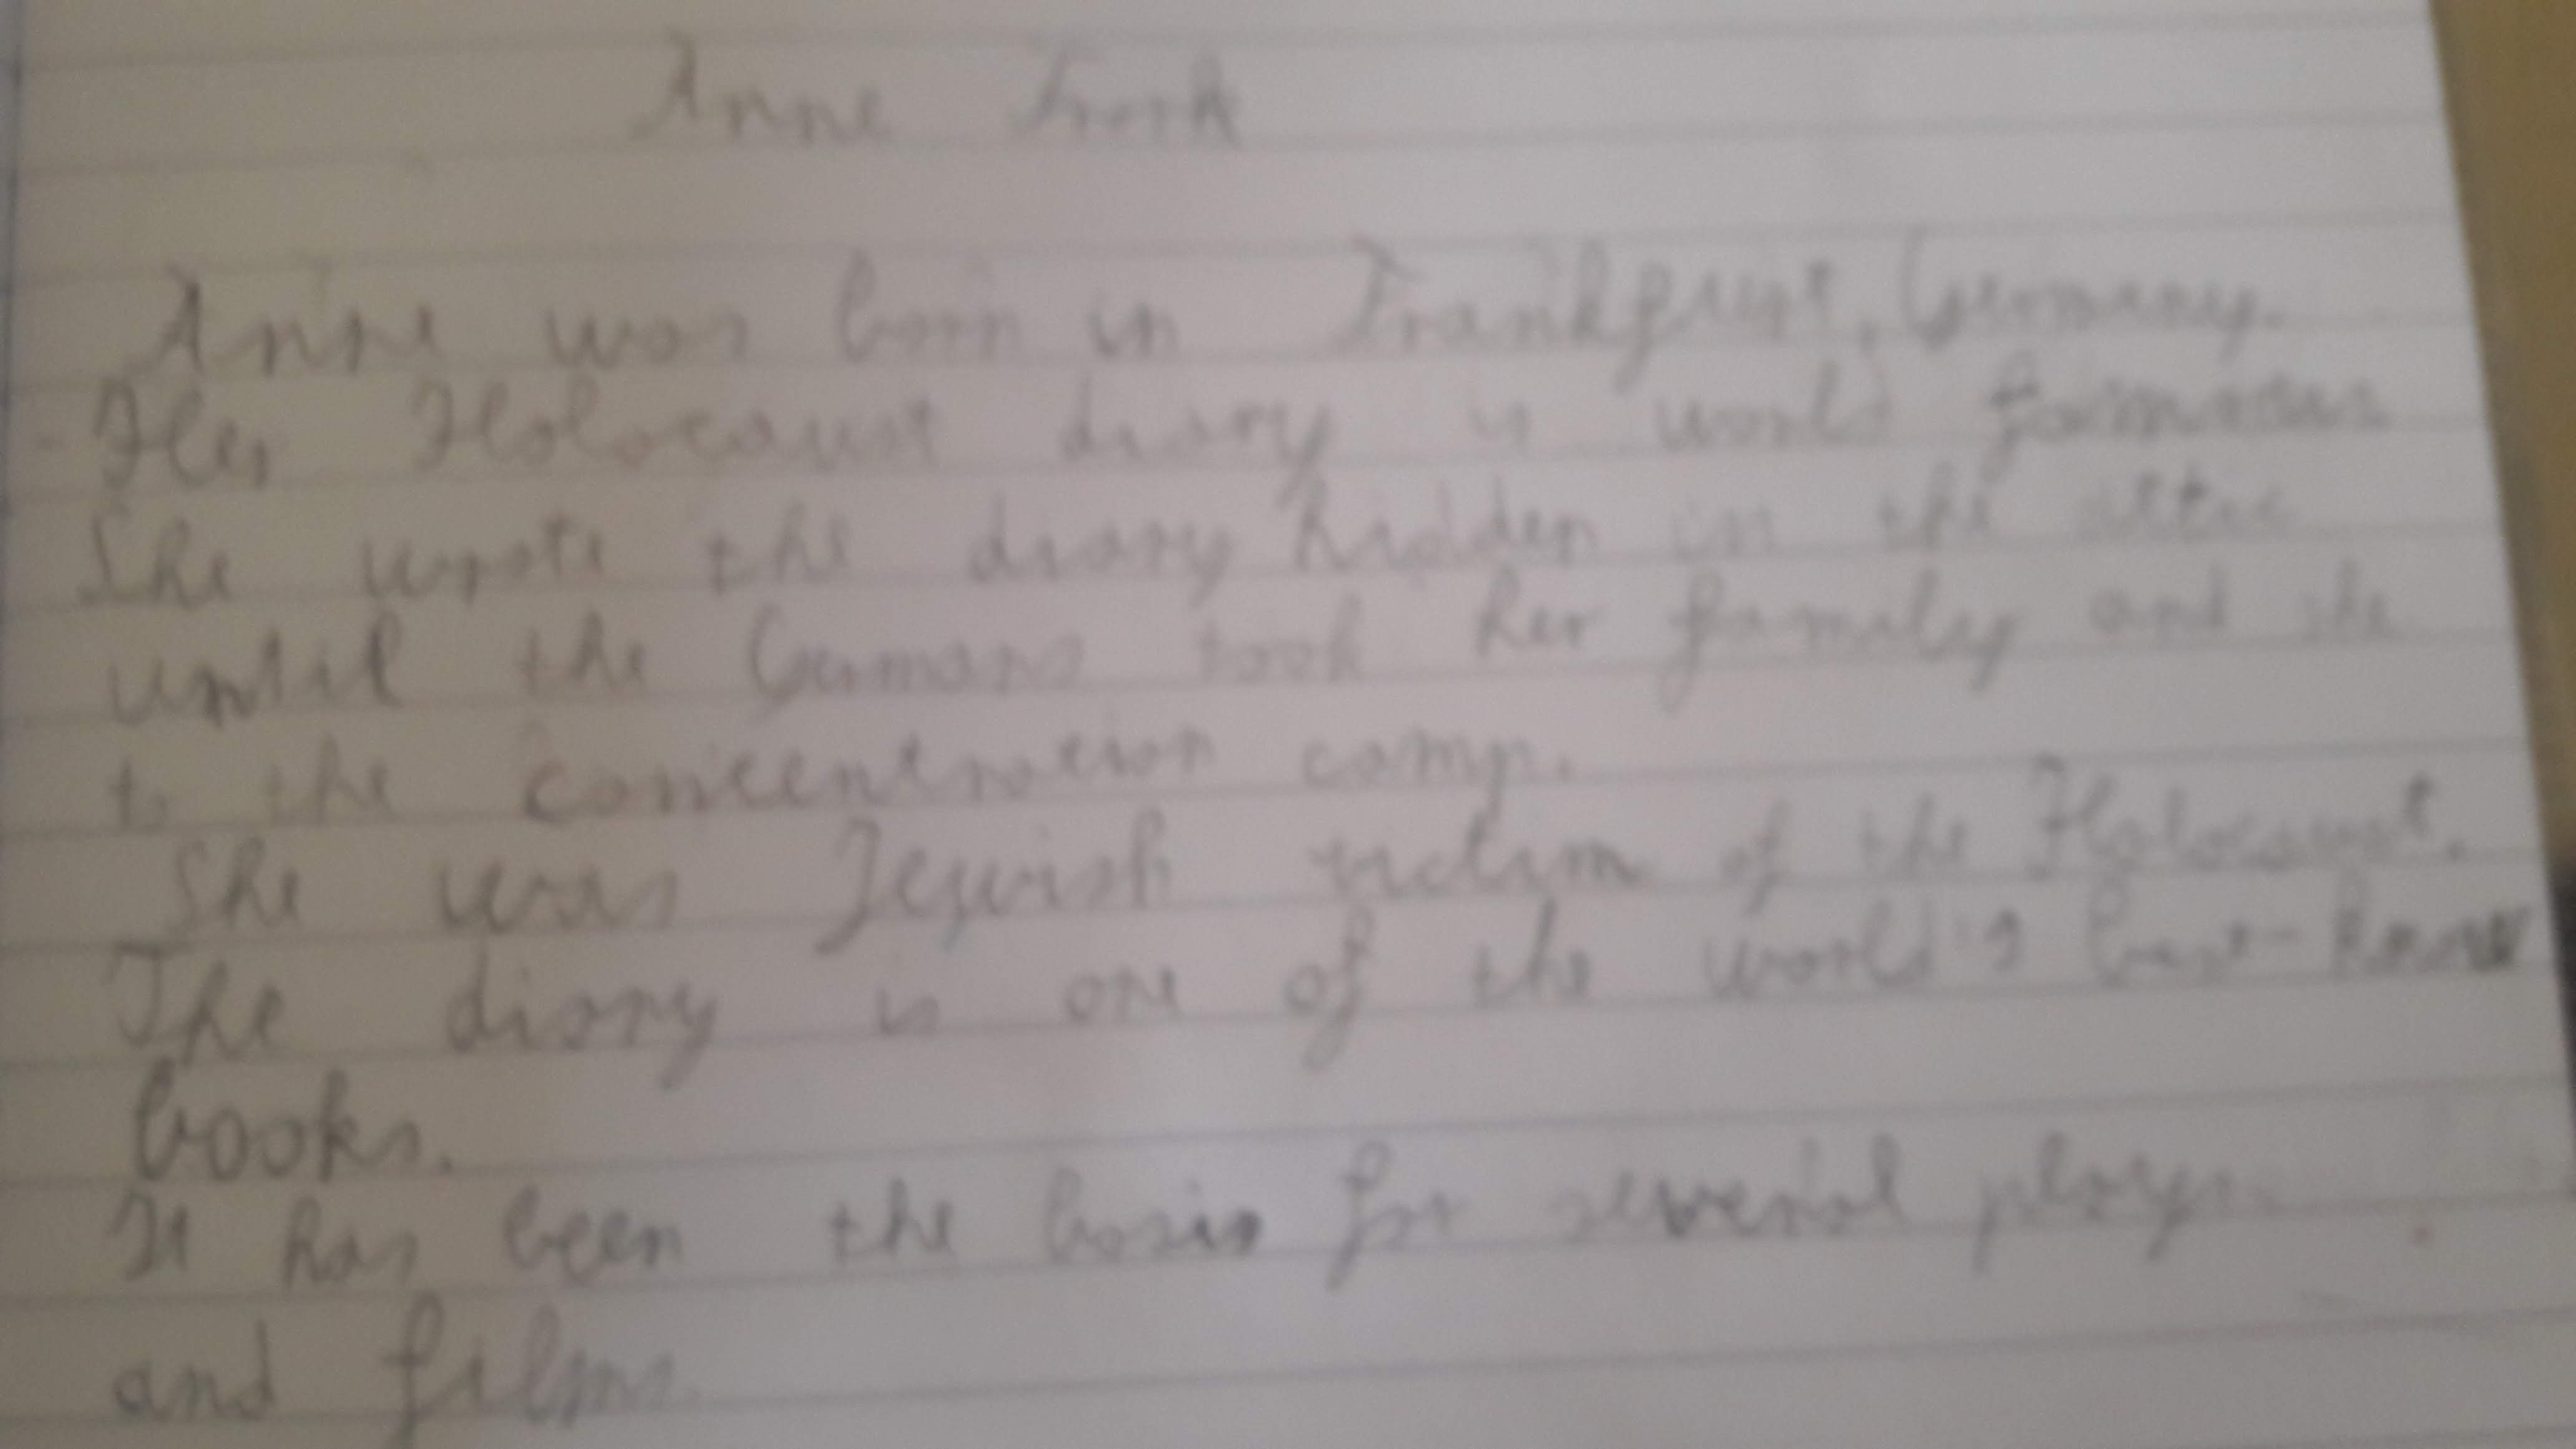 Anne Frank
Anne was born in Frankfurt, Germany.
Her Holocaust diary is world
She wrote the diary hidden in the attic
until the Germans took her family and she
to the concentration camp.
She was Jewish victim of the Holocaust.
The diary is one of the world's best-know
books.
It has been the basis for several plays
and films.